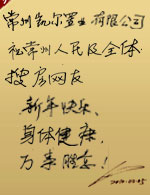 常州凯尔置业有限公司
祝常州人民及全体
搜房网友
新年快乐、
身体健康,
万事胜意!
2010.02.05